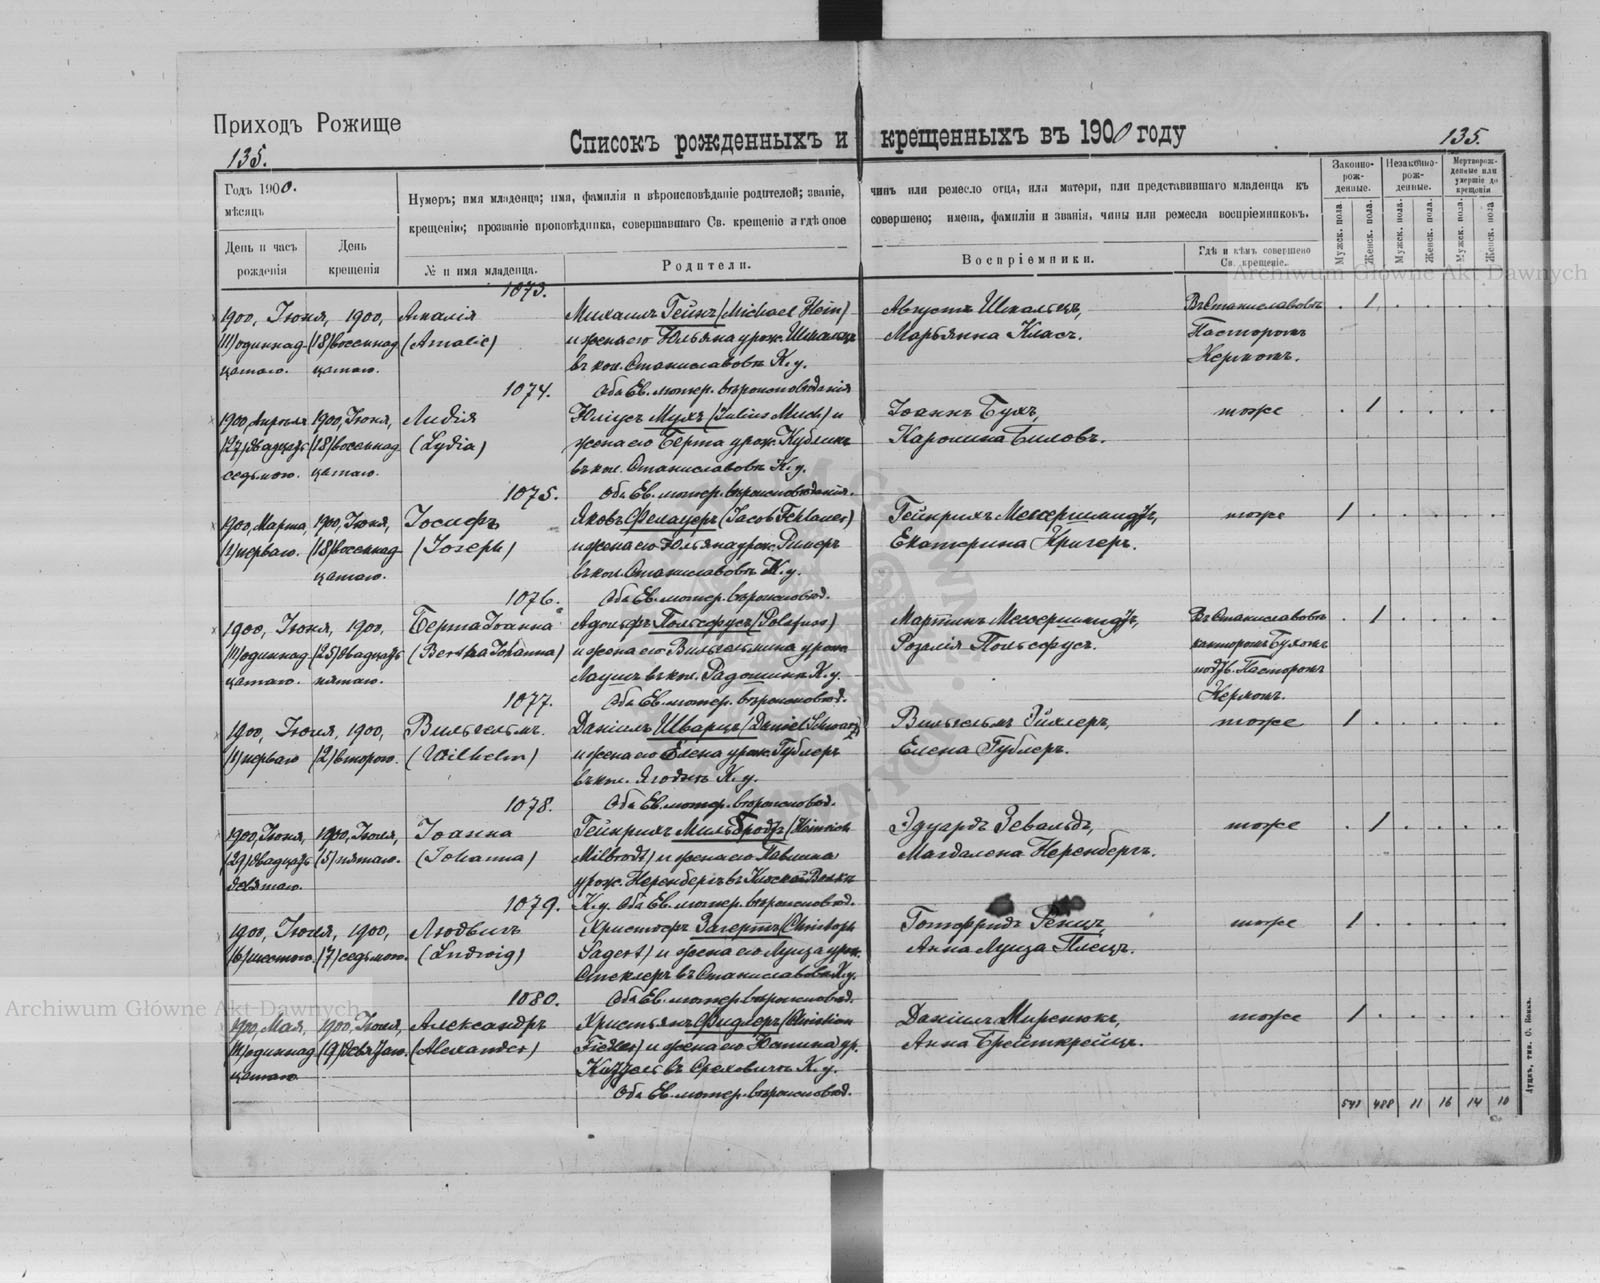 Приходъ Рожище
Списокъ рожденныхъ и крещенныхъ въ 1900 году
135.
135.
Годъ 1900.
мѣсяцъ
День и часъ рожденія
День крещенія
Нумеръ; имя младенца; имя, фамилія и вѣроисповѣданіе родителей; званіе, чинъ или ремесло отца, или матери, или представившаго младенца къ
крещенію; прозваніе проповѣдника, совершавшаго Св. крещеніе и гдѣ оное совершено; имена, фамиліи и званія, чины или ремесла воспріемниковъ.
№ и имя младенца.
Родители.
Воспріемники.
Гдѣ и кѣмъ совершено Св. крещеніе.
Законно-рож-денные.
Незаконно-рож-денные.
Мертворож-денные или умершіе до крещенія
Мужск. пола.
Женск. пола.
Мужск. пола.
Женск. пола.
Мужск. пола.
Женск. пола
Archiwum Główne Akt Dawnych
1073.
1900, Іюня, 1900, Амалія Михаилъ Гейнъ (Michael Hein) Августъ Шмальцъ, Въ Станиславовкѣ . 1 . . . .
(11) одиннад- (18) восемнад- (Amalie) и жена его Юльяна урож. Шмальцъ Марьянна Класъ. Пасторомъ
цатаго. цатаго. въ кол. Станиславовкѣ К. у. Керномъ.
1074. Оба Ев. лютер. вѣроисповѣданія
1900, Апрѣля 1900, Іюня, Лидія Юліусъ Мухъ (Julius Much) и Іоаннъ Бухъ, тоже . 1 . . . .
(27) двадцать (18) восемнад- (Lydia) жена его Берта урож. Кублинъ Каролина Биловъ.
седьмого. цатаго. въ кол. Станиславовкѣ К. у.
1075. Оба Ев. лютер. вѣроисповѣданія.
1900, Марта, 1900, Іюня, Іосифъ Яковъ Фелауеръ (Jacob Fehlauer) Гейнрихъ Мессершмидтъ, тоже 1 . . . . .
(1) перваго. (18) восемнад- (Joseph) и жена его Юльяна урож. Ример Екатерина Кригеръ.
цатаго. въ кол. Станиславовкѣ К. у.
1076. Оба Ев. лютер. вѣроисповѣд.
1900, Іюня, 1900, Берта Іоанна Адольфъ Польсфусъ (Polsfuss) Мартинъ Мессершмидтъ, Въ Станиславовкѣ . 1 . . . .
(11) одиннад- (25) двадцать (Bertha Johanna) и жена его Вильгельмина урож. Розалія Польсфусъ. канторомъ Бухомъ
цатаго. пятаго. въ кол. Радошинѣ К. у. подтв. Пасторомъ
1077. Оба Ев. лютер. вѣроисповѣд. Керномъ.
1900, Іюля, 1900, Вильгельмъ. Даніилъ Шварцъ (Daniel Schwarz) Вильгельмъ Эйхлеръ, тоже 1 . . . . .
(1) перваго (2) второго. (Wilhelm) и жена его Елена урож. Гублеръ Елена Гублеръ.
въ кол. Ягодинѣ К. у.
1078. Оба Ев. лютер. вѣроисповѣд.
1900, Іюня, 1900, Іюля, Іоанна Гейнрихъ Мильбродтъ (Heinrich Эдуардъ Зевальдъ, тоже . 1 . . . .
(29) двадцать (5) пятаго. (Johanna) Milbrodt) и жена его Павлина Магдалена Неренбергъ.
девятаго. урож. Неренбергъ въ
1079. К. у. Оба Ев. лютер. вѣроисповѣд.
1900, Іюля, 1900, Людвигъ Христофъ Загертъ (Christoph Готфридъ Генцъ, тоже 1 . . . . .
(6) шестого. (7) седьмого. (Ludwig) Sagert) и жена его Луиза урож. Анна Луиза Плецъ.
Стеклеръ въ Станиславовкѣ К. у.
1080. Оба Ев. лютер. вѣроисповѣд.
1900, Мая, 1900, Іюля, Александръ Христьянъ Фидлеръ (Christian Даніилъ Мирсиюкъ, тоже 1 . . . . .
(11) одиннад- (9) девятаго. (Alexander) Fiedler) и жена его Юлина ур. Анна Брейткрейцъ.
цатаго въ Ореховичѣ К. у.
Оба Ев. лютер. вѣроисповѣд.
541 488 11 16 14 10
Archiwum Główne Akt Dawnych
Луцкъ, тип. С. Бонка.